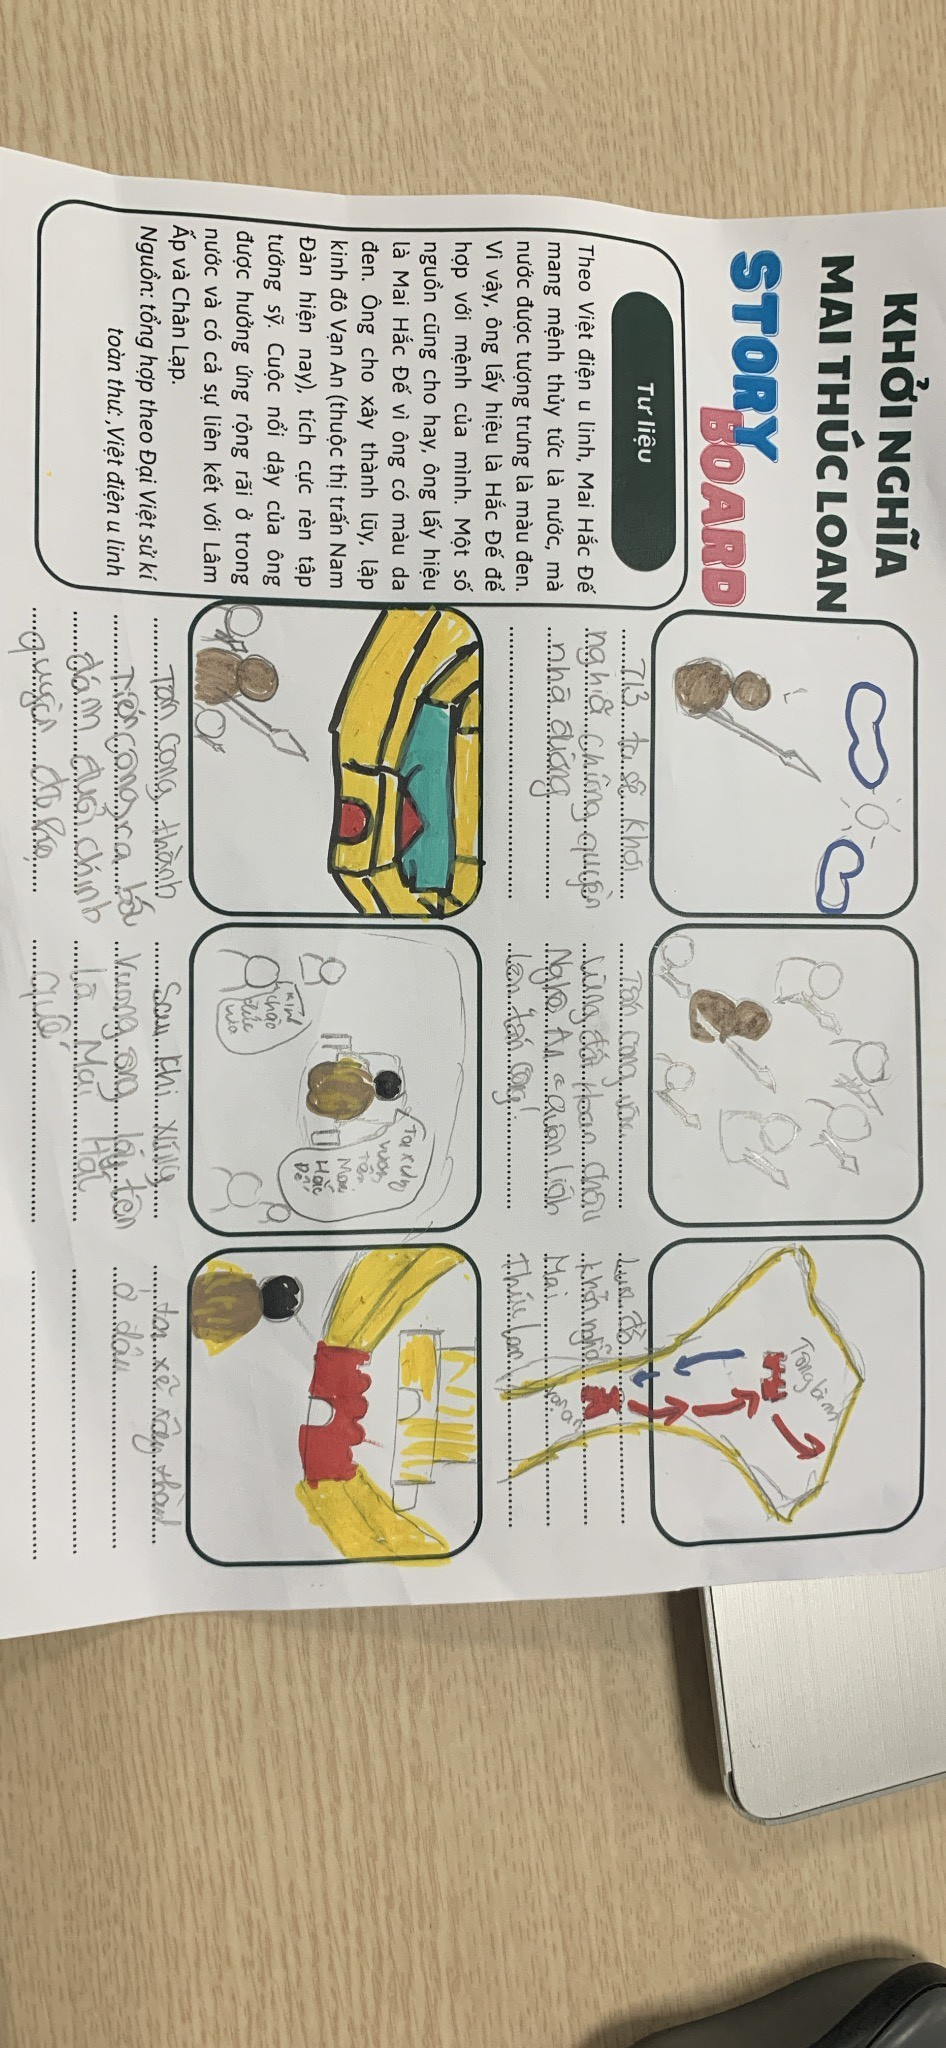 KHỞI NGHĨA
MAI THÚC LOAN
STORY
BOARD
Tư liệu
Theo Việt điện u linh, Mai Hắc Đế
mang mệnh thủy tức là nước, mà
nước được tượng trưng là màu đen.
Vì vậy, ông lấy hiệu là Hắc Đế để
hợp với mệnh của mình. Một số
nguồn cũng cho hay, ông lấy hiệu
là Mai Hắc Đế vì ông có màu da
đen. Ông cho xây thành lũy, lập
kinh đô Vạn An (thuộc thị trấn Nam
Đàn hiện nay), tích cực rèn tập
tướng sỹ. Cuộc nổi dậy của ông
được hưởng ứng rộng rãi ở trong
nước và có cả sự liên kết với Lâm
Ấp và Chân Lạp.
Nguồn: tổng hợp theo Đại Việt sử kí
toàn thư, Việt điện u linh
713 ta sẽ khởi
nghĩa chống quyền
nhà đường
Tấn công vào
vùng đất Hoan châu
Nghệ An quân lính
lên tấn công!
Tống Bình
Vạn an
Lược đồ
khởi nghĩa
Mai
Thúc Loan
Tấn công thành
Tiến công ra bắc
đánh đuổi chính
quyền đô hộ
Ta xưng
vương
tên
Mai
Hắc
Đế
kính
chào
đức
vua
Sau khi xưng
Vương ông lấy tên
là Mai Hắc
Đế
ta sẽ xây thành
ở đâu